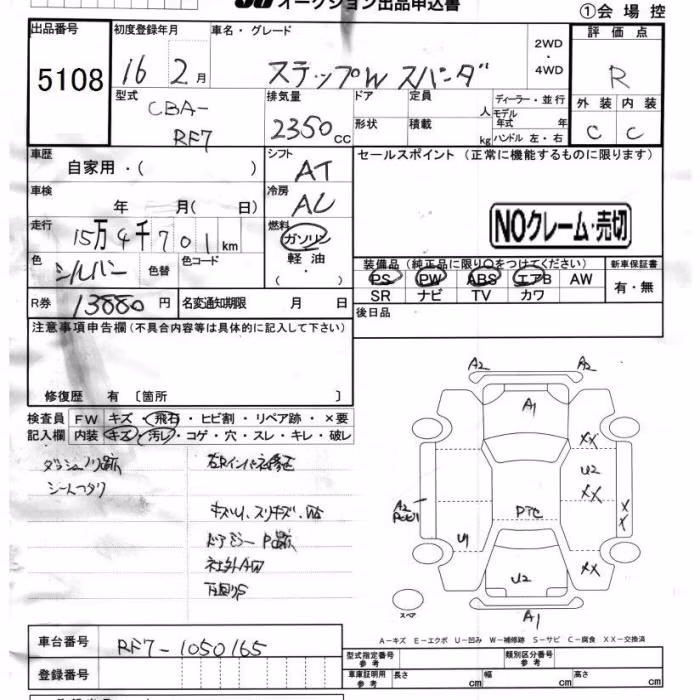 オークション出品申込書
①会場控
出品番号 初度登録年月 車名・グレード 評価点
5108 16 2月 ステップW スパーダ 2WD・4WD R
型式 排気量 ドア 定員 人 ディーラー・並行 外装 内装
CBA-
RF7 2350cc 形状 積載 kg モデル年式 年 ハンドル 左・右 C C
車歴 シフト セールスポイント (正常に機能するものに限ります)
自家用・( ) AT
車検 冷房
年 月( 日) AC
走行 燃料 NOクレーム・売切
15万4千701km ガソリン
色 色替 色コード 軽油 装備品(純正品に限り○をつけてください) 新車保証書
シルバー ・( ) PS PW ABS エアB AW 有・無
R券 13880円 名変通知期限 月 日 SR ナビ TV カワ
注意事項申告欄(不具合内容等は具体的に記入して下さい) 後日品
修復歴 有 〔箇所 〕
検査員 FW キズ・飛石・ヒビ割・リペア跡・×要
記入欄 内装 キズ・汚レ・コゲ・穴・スレ・キレ・破レ
キズU、スリキズ、
社外AW
A2 A2
A1
XX
U2
XX
A2 XX
PTC
U1
XX
U2
A1
スペア
A-キズ E-エクボ U-凹み W-補修跡 S-サビ C-腐食 XX-交換済
車台番号 RF7-1050165
型式指定番号 参考 類別区分番号 参考
登録番号 車庫証明用 参考 長さ cm 幅 cm 高さ cm